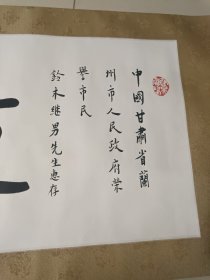 中國甘肅省蘭
州市人民政府荣
譽市民
鈴木继男先生惠存